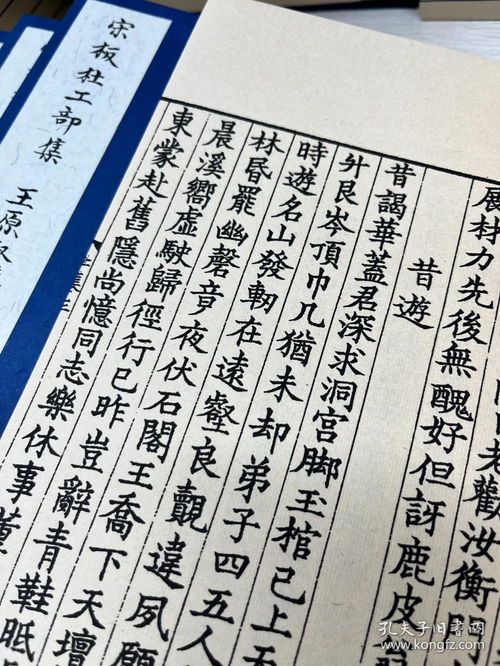 老勸汝衡門
展材力先後無醜好但訝鹿皮
昔遊
昔謁華蓋君深求洞宮脚玉棺已上天
升艮岑頂巾几猶未却弟子四五人
時遊名山發軔在遠壑良覿違夙願
林昏罷幽磬竟夜伏石閣王喬下天壇
晨溪嚮虛駃歸徑行已昨豈辭青鞋胝
東蒙赴舊隱尚憶同志樂休事董
宋板杜工部集
王原
孔夫子旧书网
www.kongfz.com